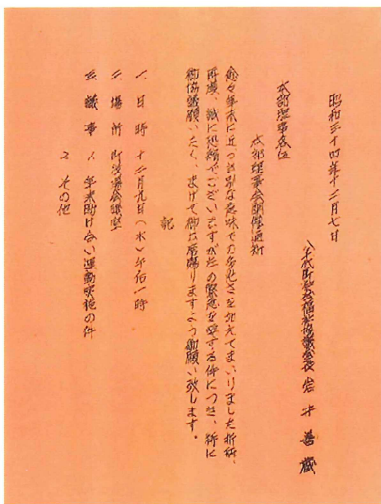 昭和三十四年十二月七日
八千代町社会福祉協議会長
本部理事各位
本部理事会開催通知
愈々年末に近づき別な意味での多忙さを加えてまいりました折柄、
再度、誠に恐縮でございますが左の緊急を要する件につき、特に
御協議願いたく、まげて御出席賜りますよう御願い致します。
記
一、日時 十二月九日(水)午后一時
二、場所 町役場会議室
三、議事 1、年末助け合い運動実施の件
2、その他